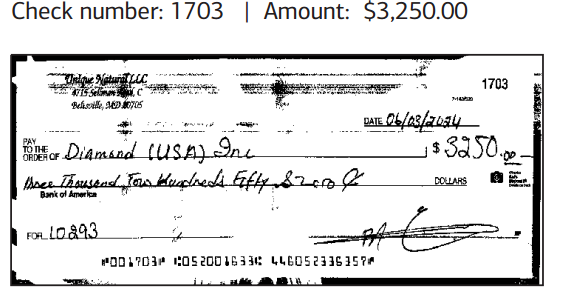 Check number: 1703 | Amount: $3,250.00
Unique Natural LLC
4715 Sellman Road, C
Beltsville, MD 20705
1703
7-1632/520
DATE 06/03/2024
PAY
TO THE
ORDER OF Diamond (USA) Inc $ 3250.00
Three Thousand Four Hundreds Fifty & zero DOLLARS
Bank of America
FOR 10293
⑈001703⑈ ⑆052001633⑆ 446052336357⑈